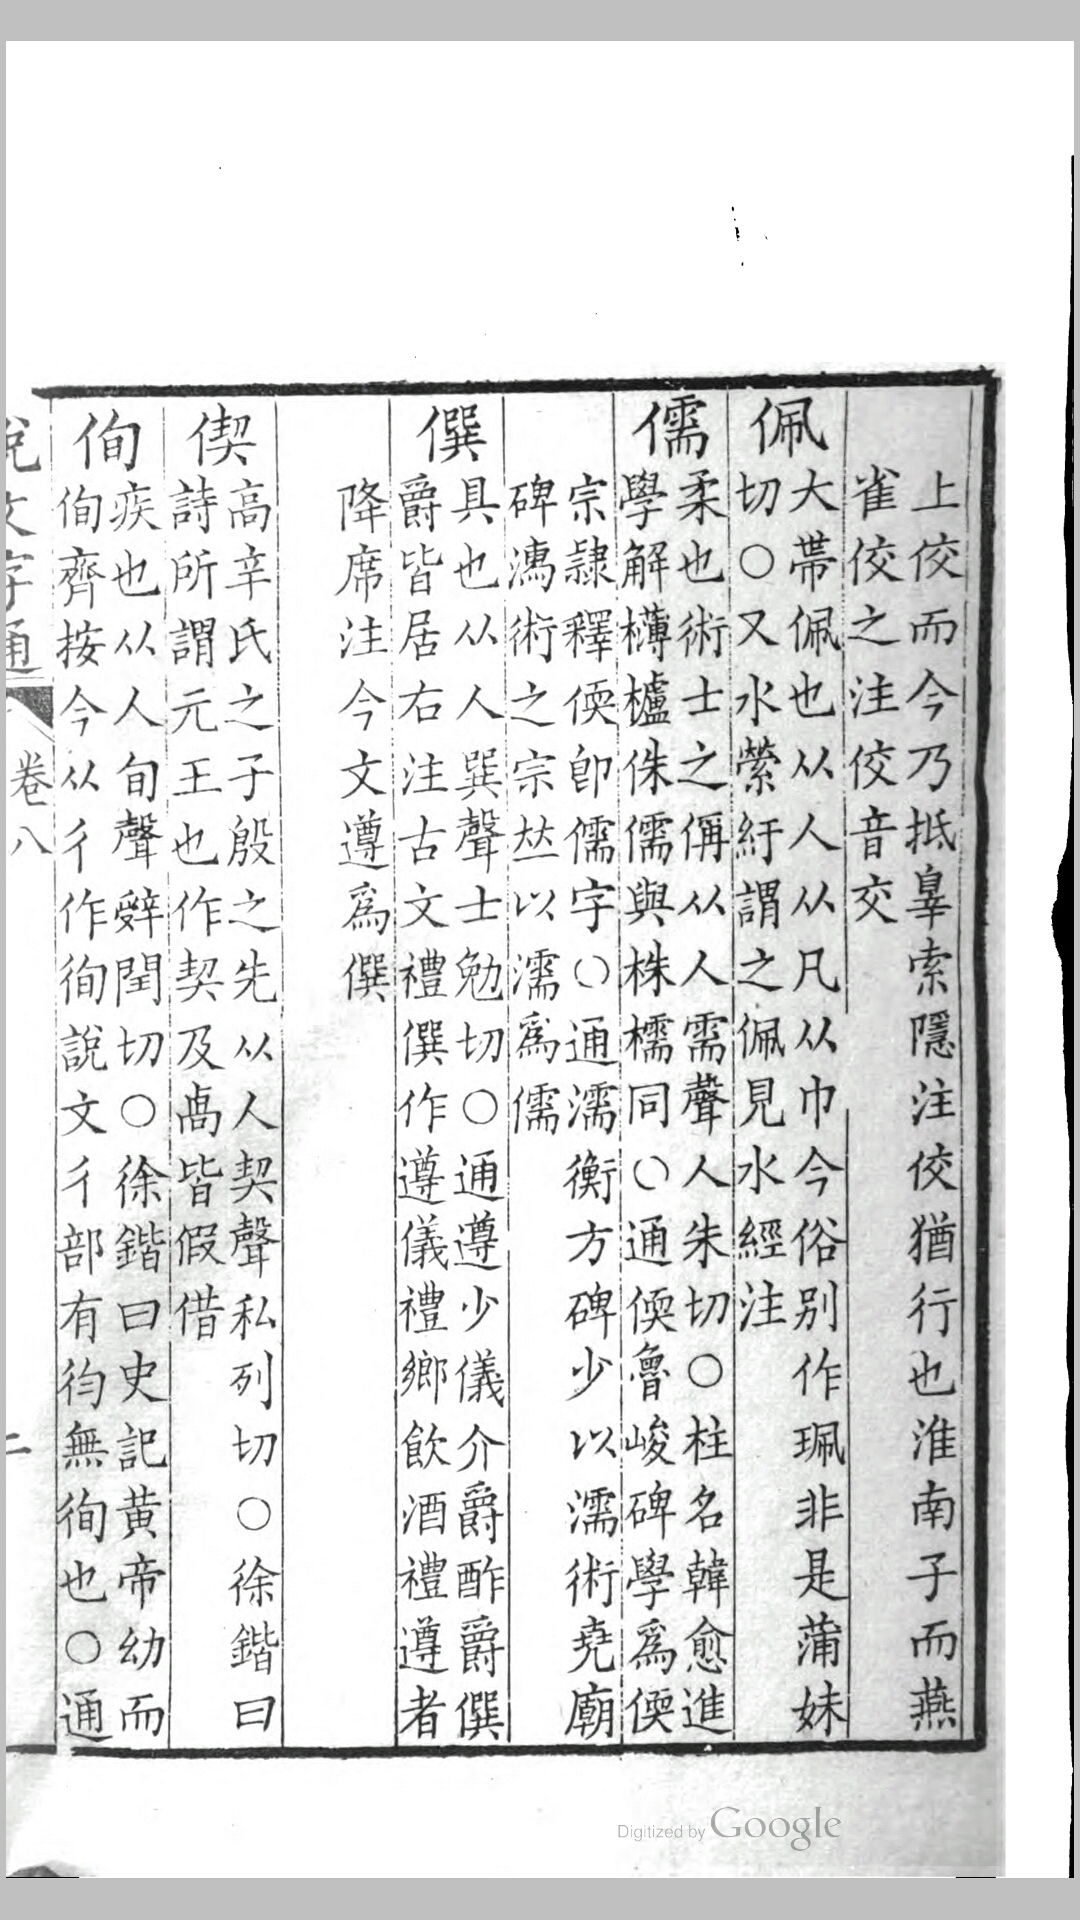 上佼而今乃抵辠索隱注佼猶行也淮南子而燕
雀佼之注佼音交
佩
大帶佩也从人从凡从巾今俗别作珮非是蒲妹
切○又水縈紆謂之佩見水經注
儒
柔也術士之偁从人需聲人朱切○柱名韓愈進
學解欂櫨侏儒與株檽同○通偄魯峻碑學爲偄
宗隷釋偄卽儒字○通濡衡方碑少以濡術堯廟
碑術之宗竝以濡爲儒
僎
具也从人巽聲士勉切○通遵少儀介爵酢爵僎
爵皆居右注古文禮僎作遵儀禮鄉飲酒禮遵者
降席注今文遵爲僎
偰
高辛氏之子殷之先从人契聲私列切○徐鍇曰
詩所謂元王也作契及禼皆假借
侚
疾也从人旬聲辭閏切○徐鍇曰史記黄帝幼而
侚齊按今从彳作徇說文彳部有㣘無徇也○通
說文字通
卷八
二
Digitized by Google